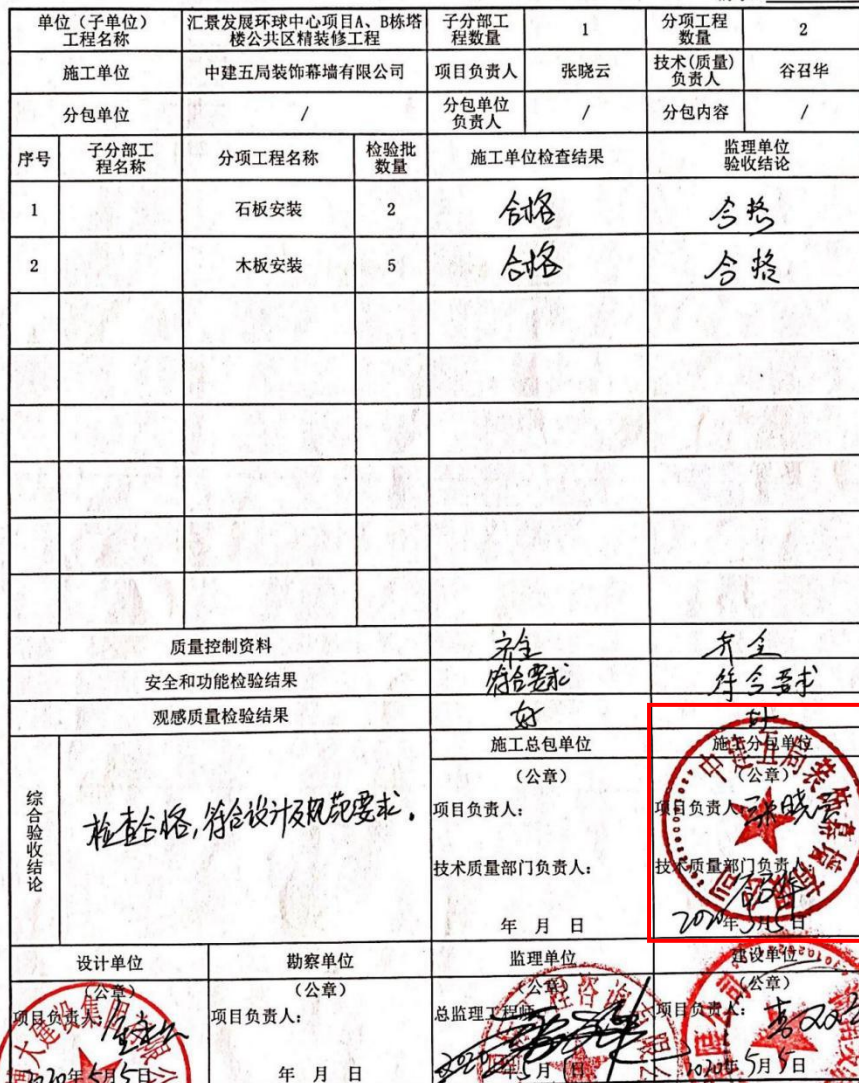 单位（子单位）工程名称 汇景发展环球中心项目A、B栋塔楼公共区精装修工程 子分部工程数量 1 分项工程数量 2
施工单位 中建五局装饰幕墙有限公司 项目负责人 张晓云 技术(质量)负责人 谷召华
分包单位 / 分包单位负责人 / 分包内容 /
序号 子分部工程名称 分项工程名称 检验批数量 施工单位检查结果 监理单位验收结论
1 石板安装 2 合格 合格
2 木板安装 5 合格 合格
质量控制资料 齐全 齐全
安全和功能检验结果 符合要求 符合要求
观感质量检验结果 好 好
综合验收结论 检查合格，符合设计及规范要求。
施工总包单位
（公章）
项目负责人：
技术质量部门负责人：
年 月 日
施工分包单位
（公章）
项目负责人 张晓云
技术质量部门负责人
2020年5月5日
中建五局装饰幕墙有限公司
设计单位
（公章）
项目负责人：
2020年5月5日
勘察单位
（公章）
项目负责人：
年 月 日
监理单位
（公章）
总监理工程师
2020年5月
建设单位
（公章）
项目负责人：
2020年5月5日